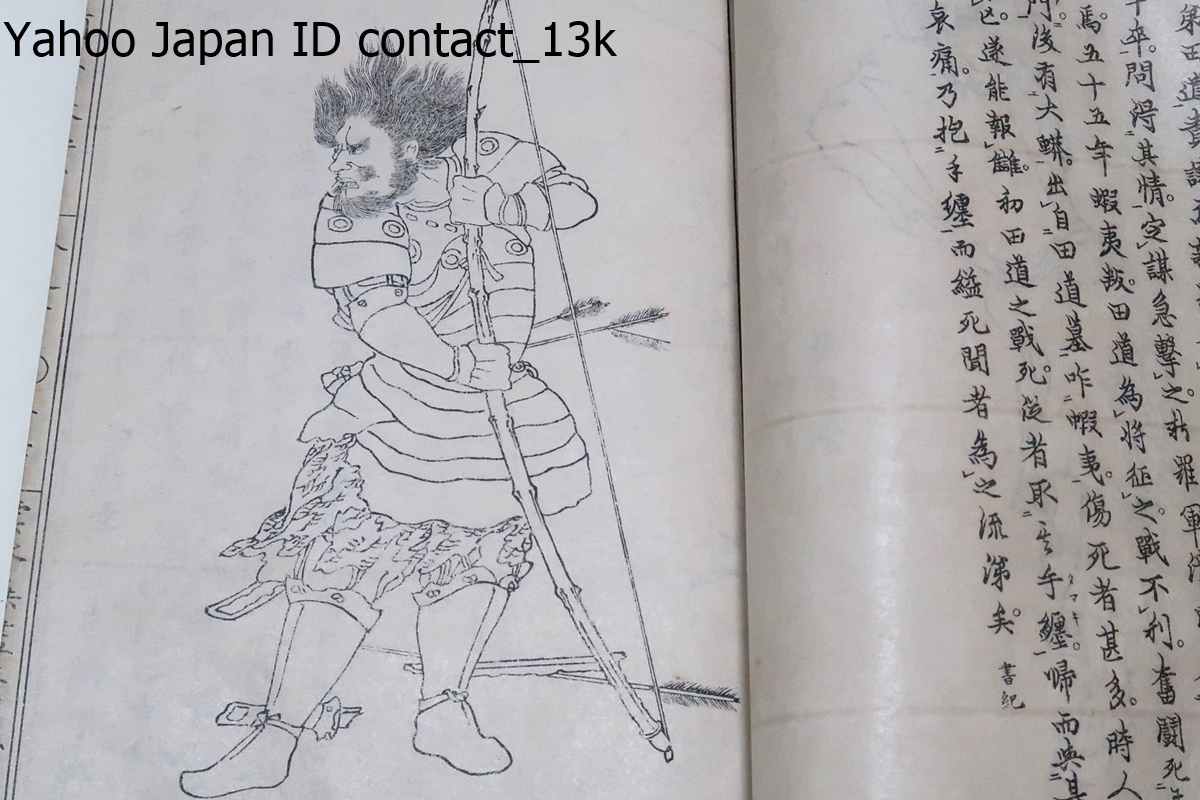 Yahoo Japan ID contact_13k
弟田道責
卒。問得其情。定謀急擊之。新羅軍潰
焉。五十五年蝦夷叛。田道為將征之。戰不利。奮鬪死
後有大蟒。出自田道墓。咋蝦夷。傷死者甚多。時人
亡。遂能報讎。初田道之戰死。從者取其手纏。帰而與其
哀痛。乃抱手纏而縊死聞者為之流涕矣。書紀